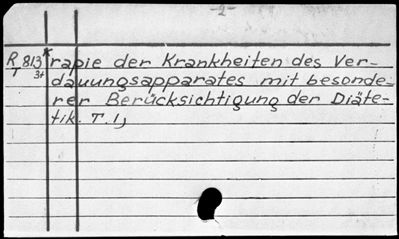 -2-
R 813* rapie der Krankheiten des Ver-
T 3t dauungsapparates mit besonde-
rer Berücksichtigung der Diäte-
tik. T. 1,